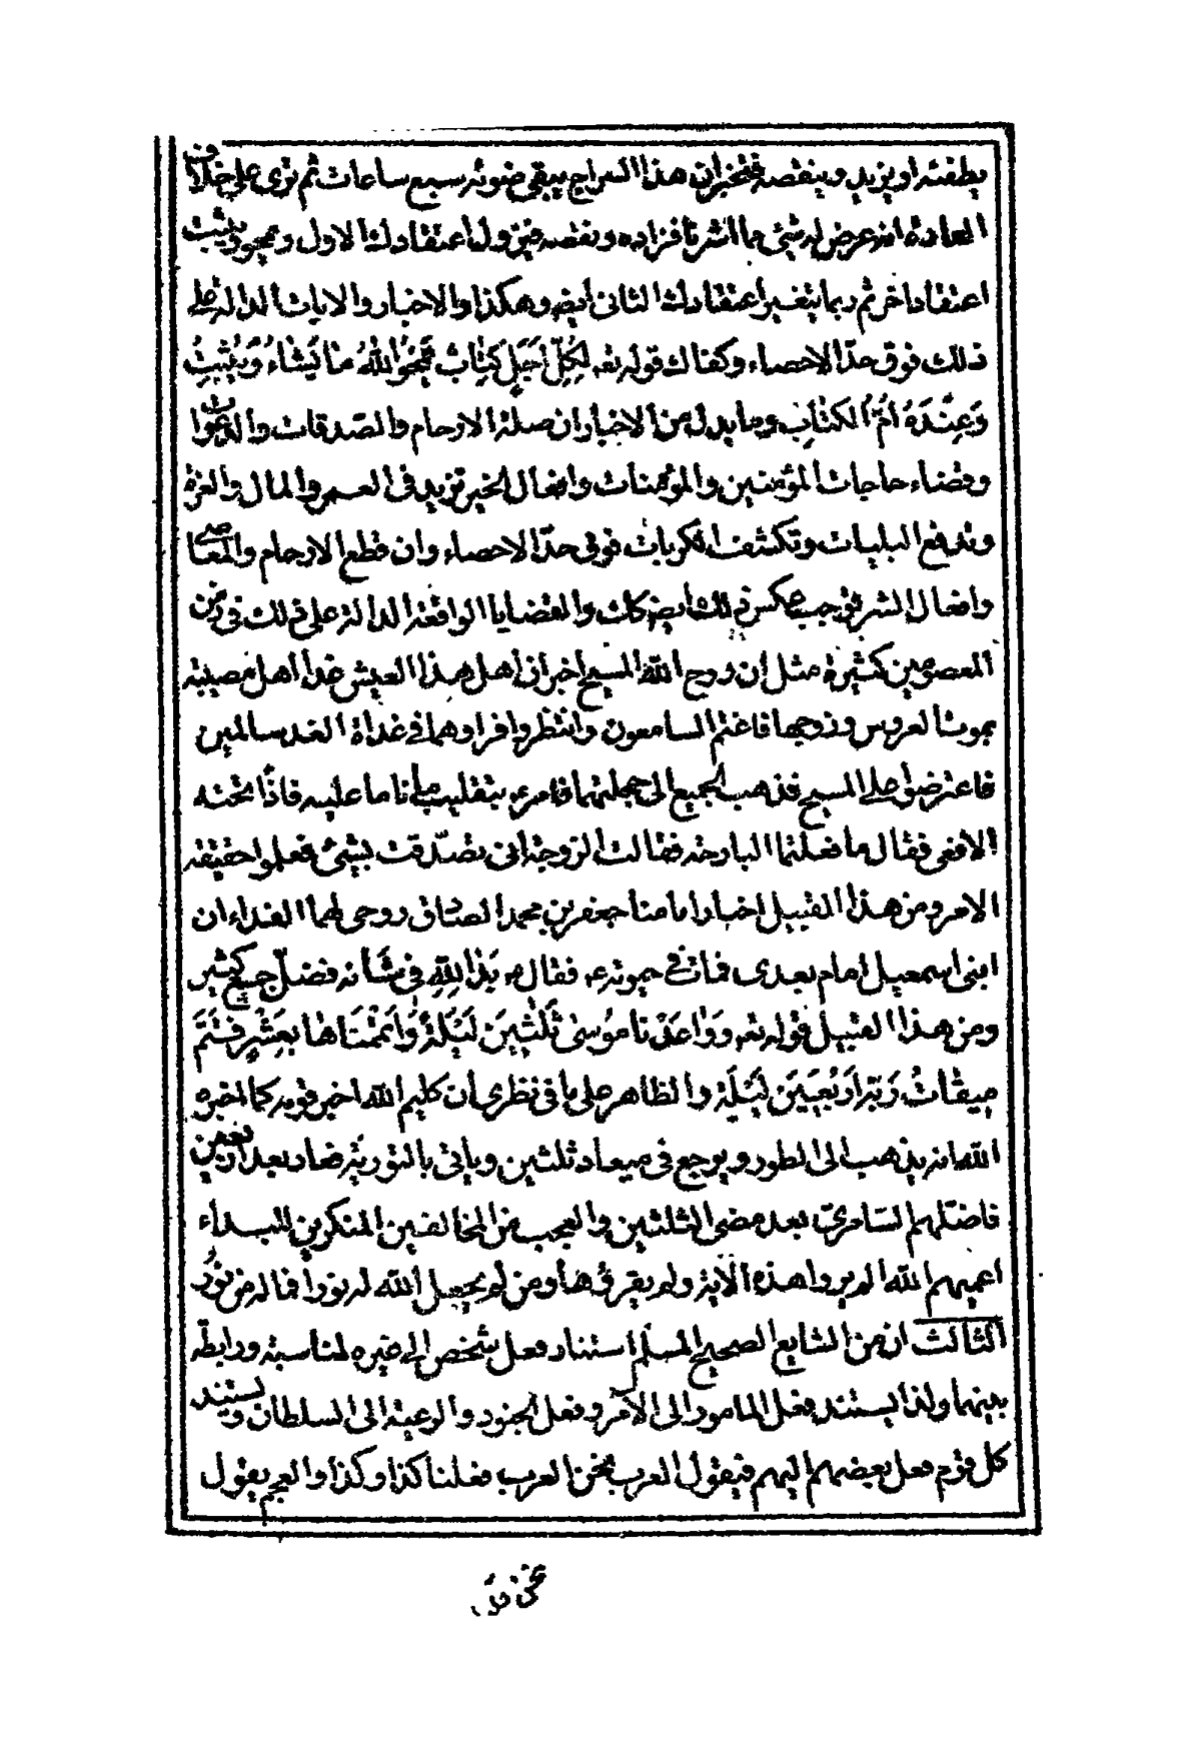 يطفئه او يزيد وينقصه فتخبر ان هذا السراج يبقى ضوئه سبع ساعات ثم ترى على خلاف
العادة انه عرض له شئ مما اشرنا فزاده ونقصه فيزول اعتقادك الاول ويمحو ويثبت
اعتقاد اخر ثم ربما يتغير اعتقادك الثانى ايضا وهكذا والاخبار والايات الدالة على
ذلك فوق حدّ الاحصاء وكفاك قوله تعه لِكُلِّ اَجَلٍ كِتٰابٌ يَمْحُوا اللهُ مٰا يَشٰاءُ وَيُثْبِتُ
وَعِنْدَهُ اُمُّ الكِتٰابِ وما يدل من الاخبار ان صلة الارحام والصّدقات والدعوات
وقضاء حاجات المؤمنين والمؤمنات وافعال الخير تزيد فى العمر والمال والعزة
وتدفع البليات وتكشف الكربات فوق حدّ الاحصاء وان قطع الارحام والمعاصى
وافعال الشر توجب عكس ذلك ايضا كك والقضايا الواقعة الدالة على ذلك فى زمن
المعصومين كثيرة مثل ان روح الله المسيح اخبر ان اهل هذا العيش غدا اهل مصيبة
بموت العروس وزوجها فاغتم السامعون وانتظروا فراوهما فى غداة الغد سالمين
فاعترضوا على المسيح فذهب الجميع الى حجلتهما فامر ع بتقليب ما ناما عليه فاذا تحته
الافعى فقال ما فعلتما البارحة فقالت الزوجة انى تصدّقت بشئ فعلموا حقيقة
الامر ومن هذا القبيل اخبار امامنا جعفر بن محمد الصادق روحى لهما الفداء ان
ابنى اسمعيل امام بعدى فمات فى حيوته ع فقال ع بَدا لِلّٰهِ فى شأنه فضلّ جمع كثير
ومن هذا القبيل قوله تعه وَوٰاعَدْنا مُوسىٰ ثَلٰثِينَ لَيْلَةً وَاَتْمَمْنَاهٰا بِعَشْرٍ فَتَمَّ
مِيقٰاتُ رَبِّهِ اَرْبَعِينَ لَيْلَةً والظاهر على ما فى نظرى ان كليم الله اخبر قومه كما اخبره
الله انه يذهب الى الطور ويرجع فى ميعاد ثلثين وياتى بالتورية فعاد بعد اربعين
فاضلّهم السّامرىّ بعد مضى الثلثين والعجب من المخالفين المنكرين للبداء
اعميهم الله الم يروا هذه الاية ولم يقرؤها ومن لم يجعل الله له نورا فما له من نُورٍ
الثالث ان من الشايع الصحيح المسلم استناد فعل شخص الى غيره لمناسبة ورابطة
بينهما ولذا يستند فعل المامور الى الآمر وفعل الجنود والرعية الى السلطان ويستند
كل قوم فعل بعضهم اليهم فيقول العرب نحن العرب فعلنا كذا وكذا والعجم يقول